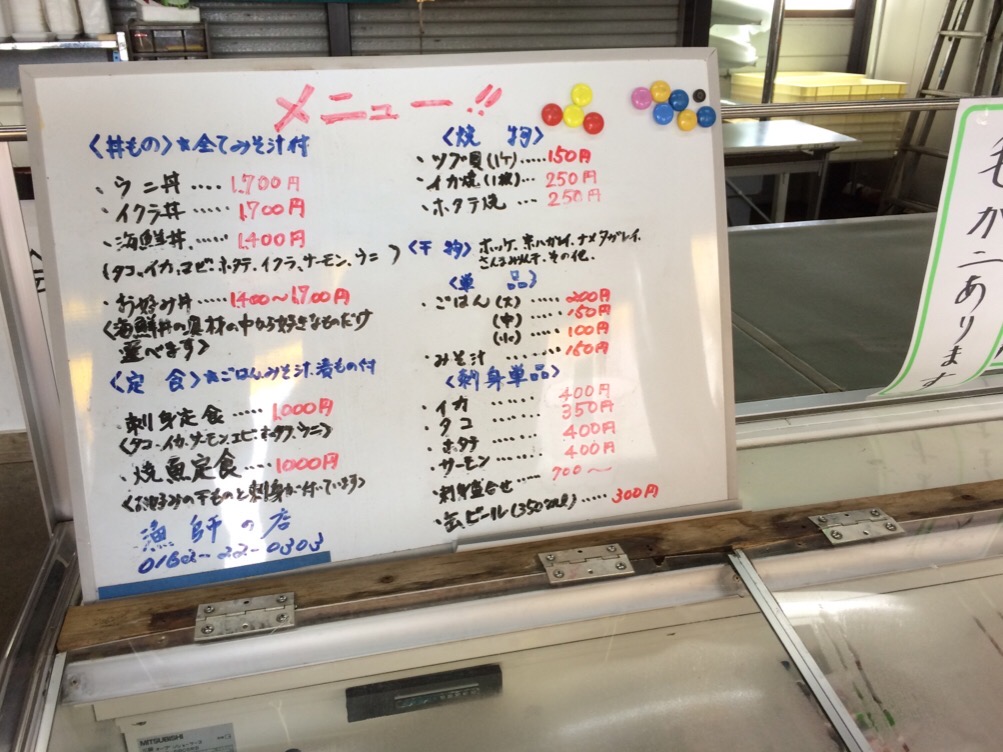 メニュー!!
〈丼もの〉☆全てみそ汁付
・ウニ丼....1,700円
・イクラ丼.....1,700円
・海鮮丼.....1,400円
(タコ、イカ、エビ、ホタテ、イクラ、サーモン、ウニ)
・お好み丼.....1,400〜1,700円
〈海鮮丼の具材の中から好きなものだけ
選べます〉
〈定食〉☆ごはん、みそ汁、漬もの付
・刺身定食.....1,000円
〈タコ、イカ、サーモン、エビ、ホタテ、ウニ〉
・焼魚定食....1000円
〈お好みの干ものと刺身が付いています〉
漁師の店
0162-22-0303
〈焼物〉
・ツブ貝(1ケ).....150円
・イカ焼(1枚)...250円
・ホタテ焼...250円
〈干物〉ホッケ、宗八ガレイ、ナメタガレイ、
さんまみりん干、その他、
〈単品〉
・ごはん(大).....200円
(中).....150円
(小).....100円
・みそ汁.......150円
〈刺身単品〉
・イカ......400円
・タコ......350円
・ホタテ......400円
・サーモン......400円
・刺身盛合せ.....700〜
・缶ビール(350ml).....300円
毛がニあります
MITSUBISHI